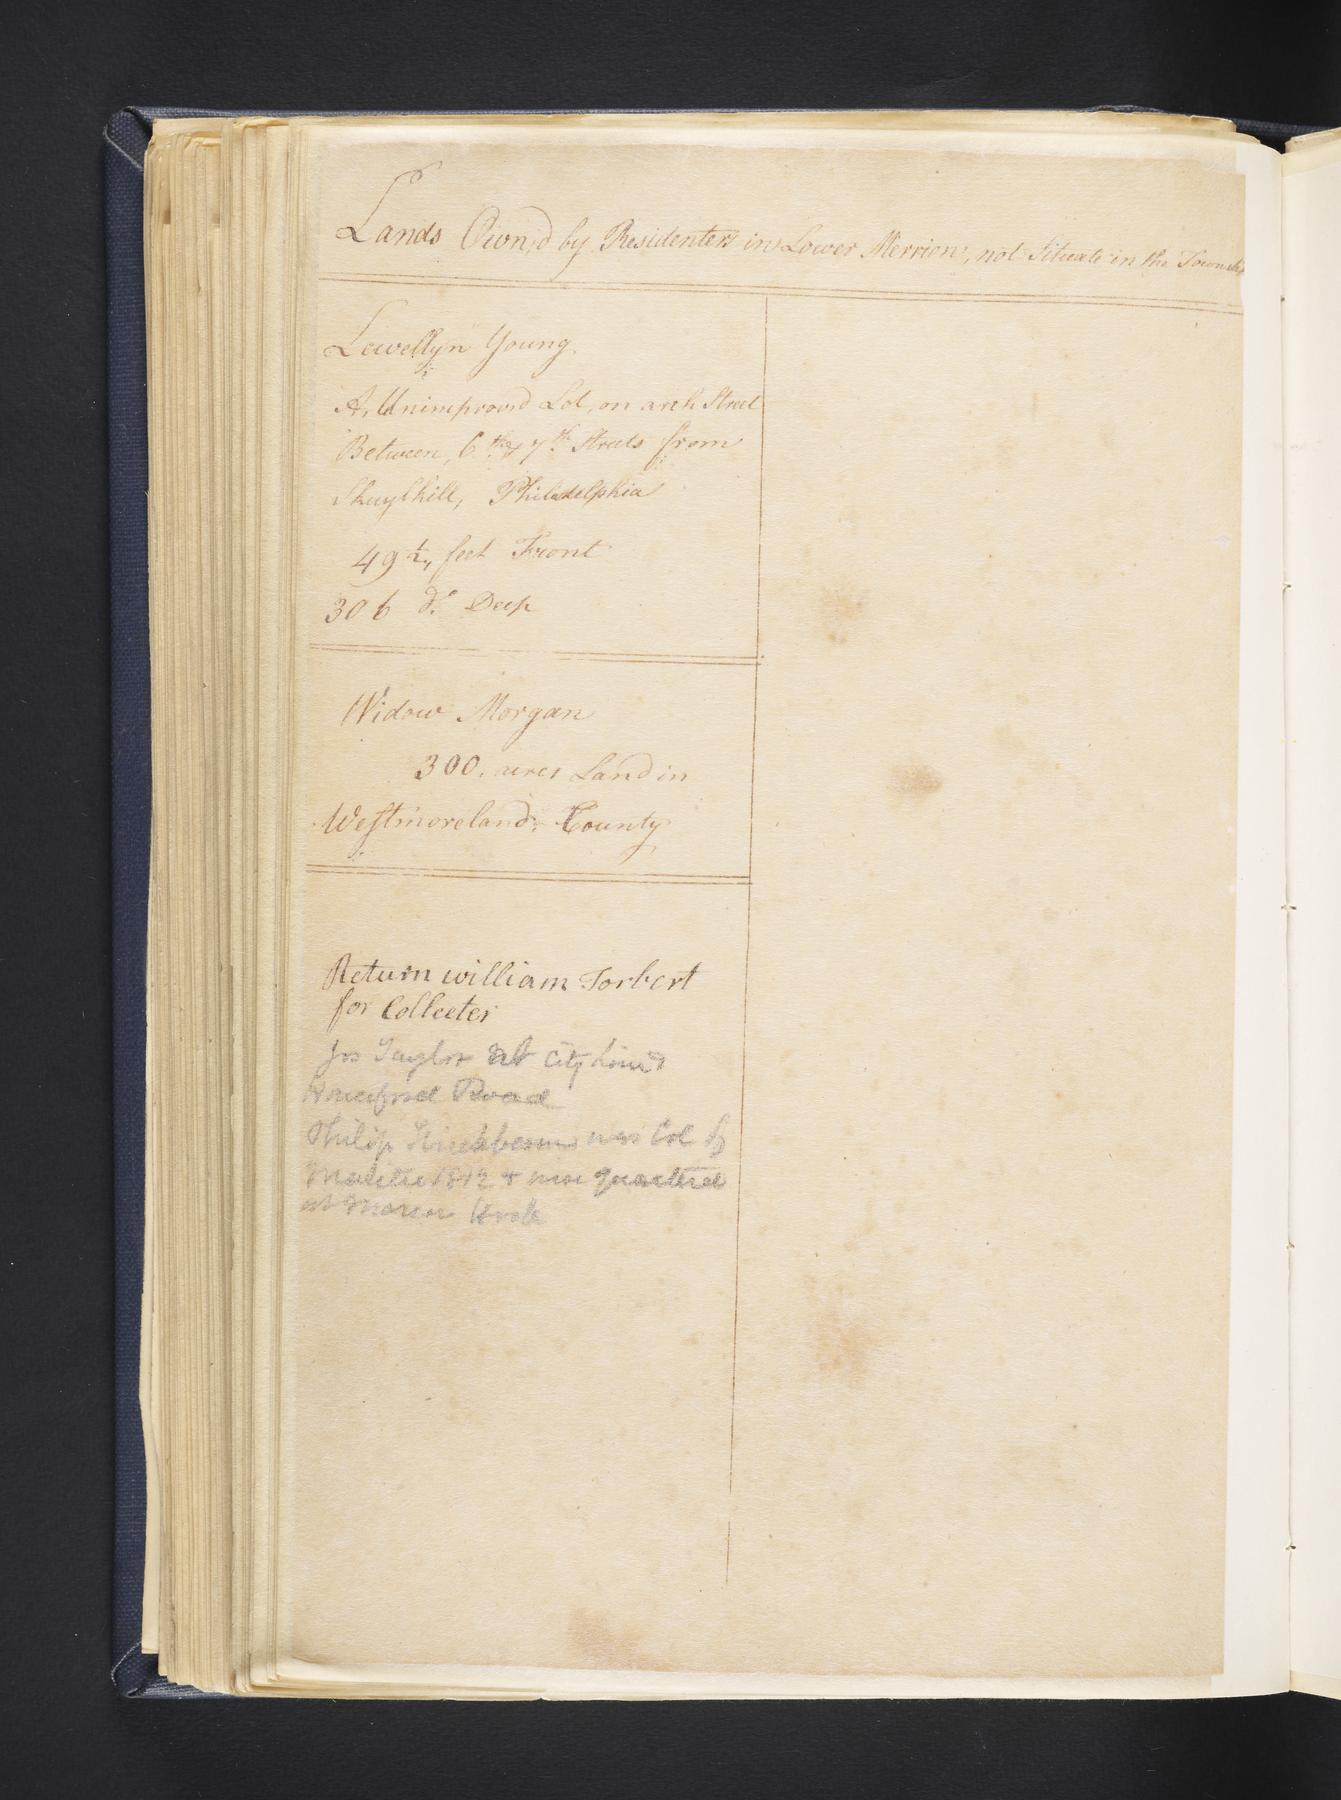 Lands Own,d by Residenters in Lower Merrion, not Situate in the Township
Lewellyn Young
An Unimproov,d Lot, on arch Street
Between, 6.th & 7.th Streets from
Skuylkill, Philadelphia
49 ½, feet Front
306 d.o Deep
Widow Morgan
300. acres Land in
Westmoreland. County
Return william Torbert
for Collecter
Jos Taylor at City Line &
Haverford Road
Philip was Col of
Malitia 1812 & was quartered
at Marcus Hook